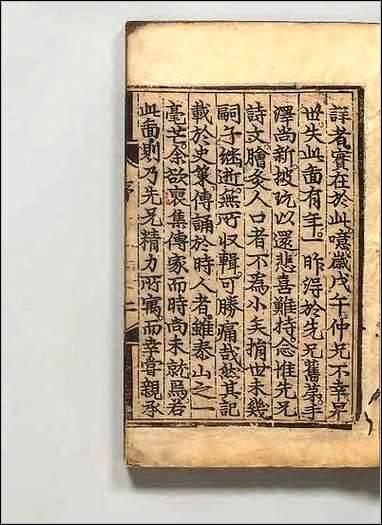 詳者實在於此噫歲戊午仲兄不幸早
世失此啚有年一昨得於先兄舊苐手
澤尚新披玩以還悲喜難持念惟先兄
詩文膾炙人口者不為小矣捐世未幾
嗣子継逝無所収輯可勝痛哉於其記
載於史策傳誦於時人者雖泰山之一
毫芒余欲裒集傳家而時尚未就焉若
此啚則乃先兄精力所寓而幸嘗親承
序 二